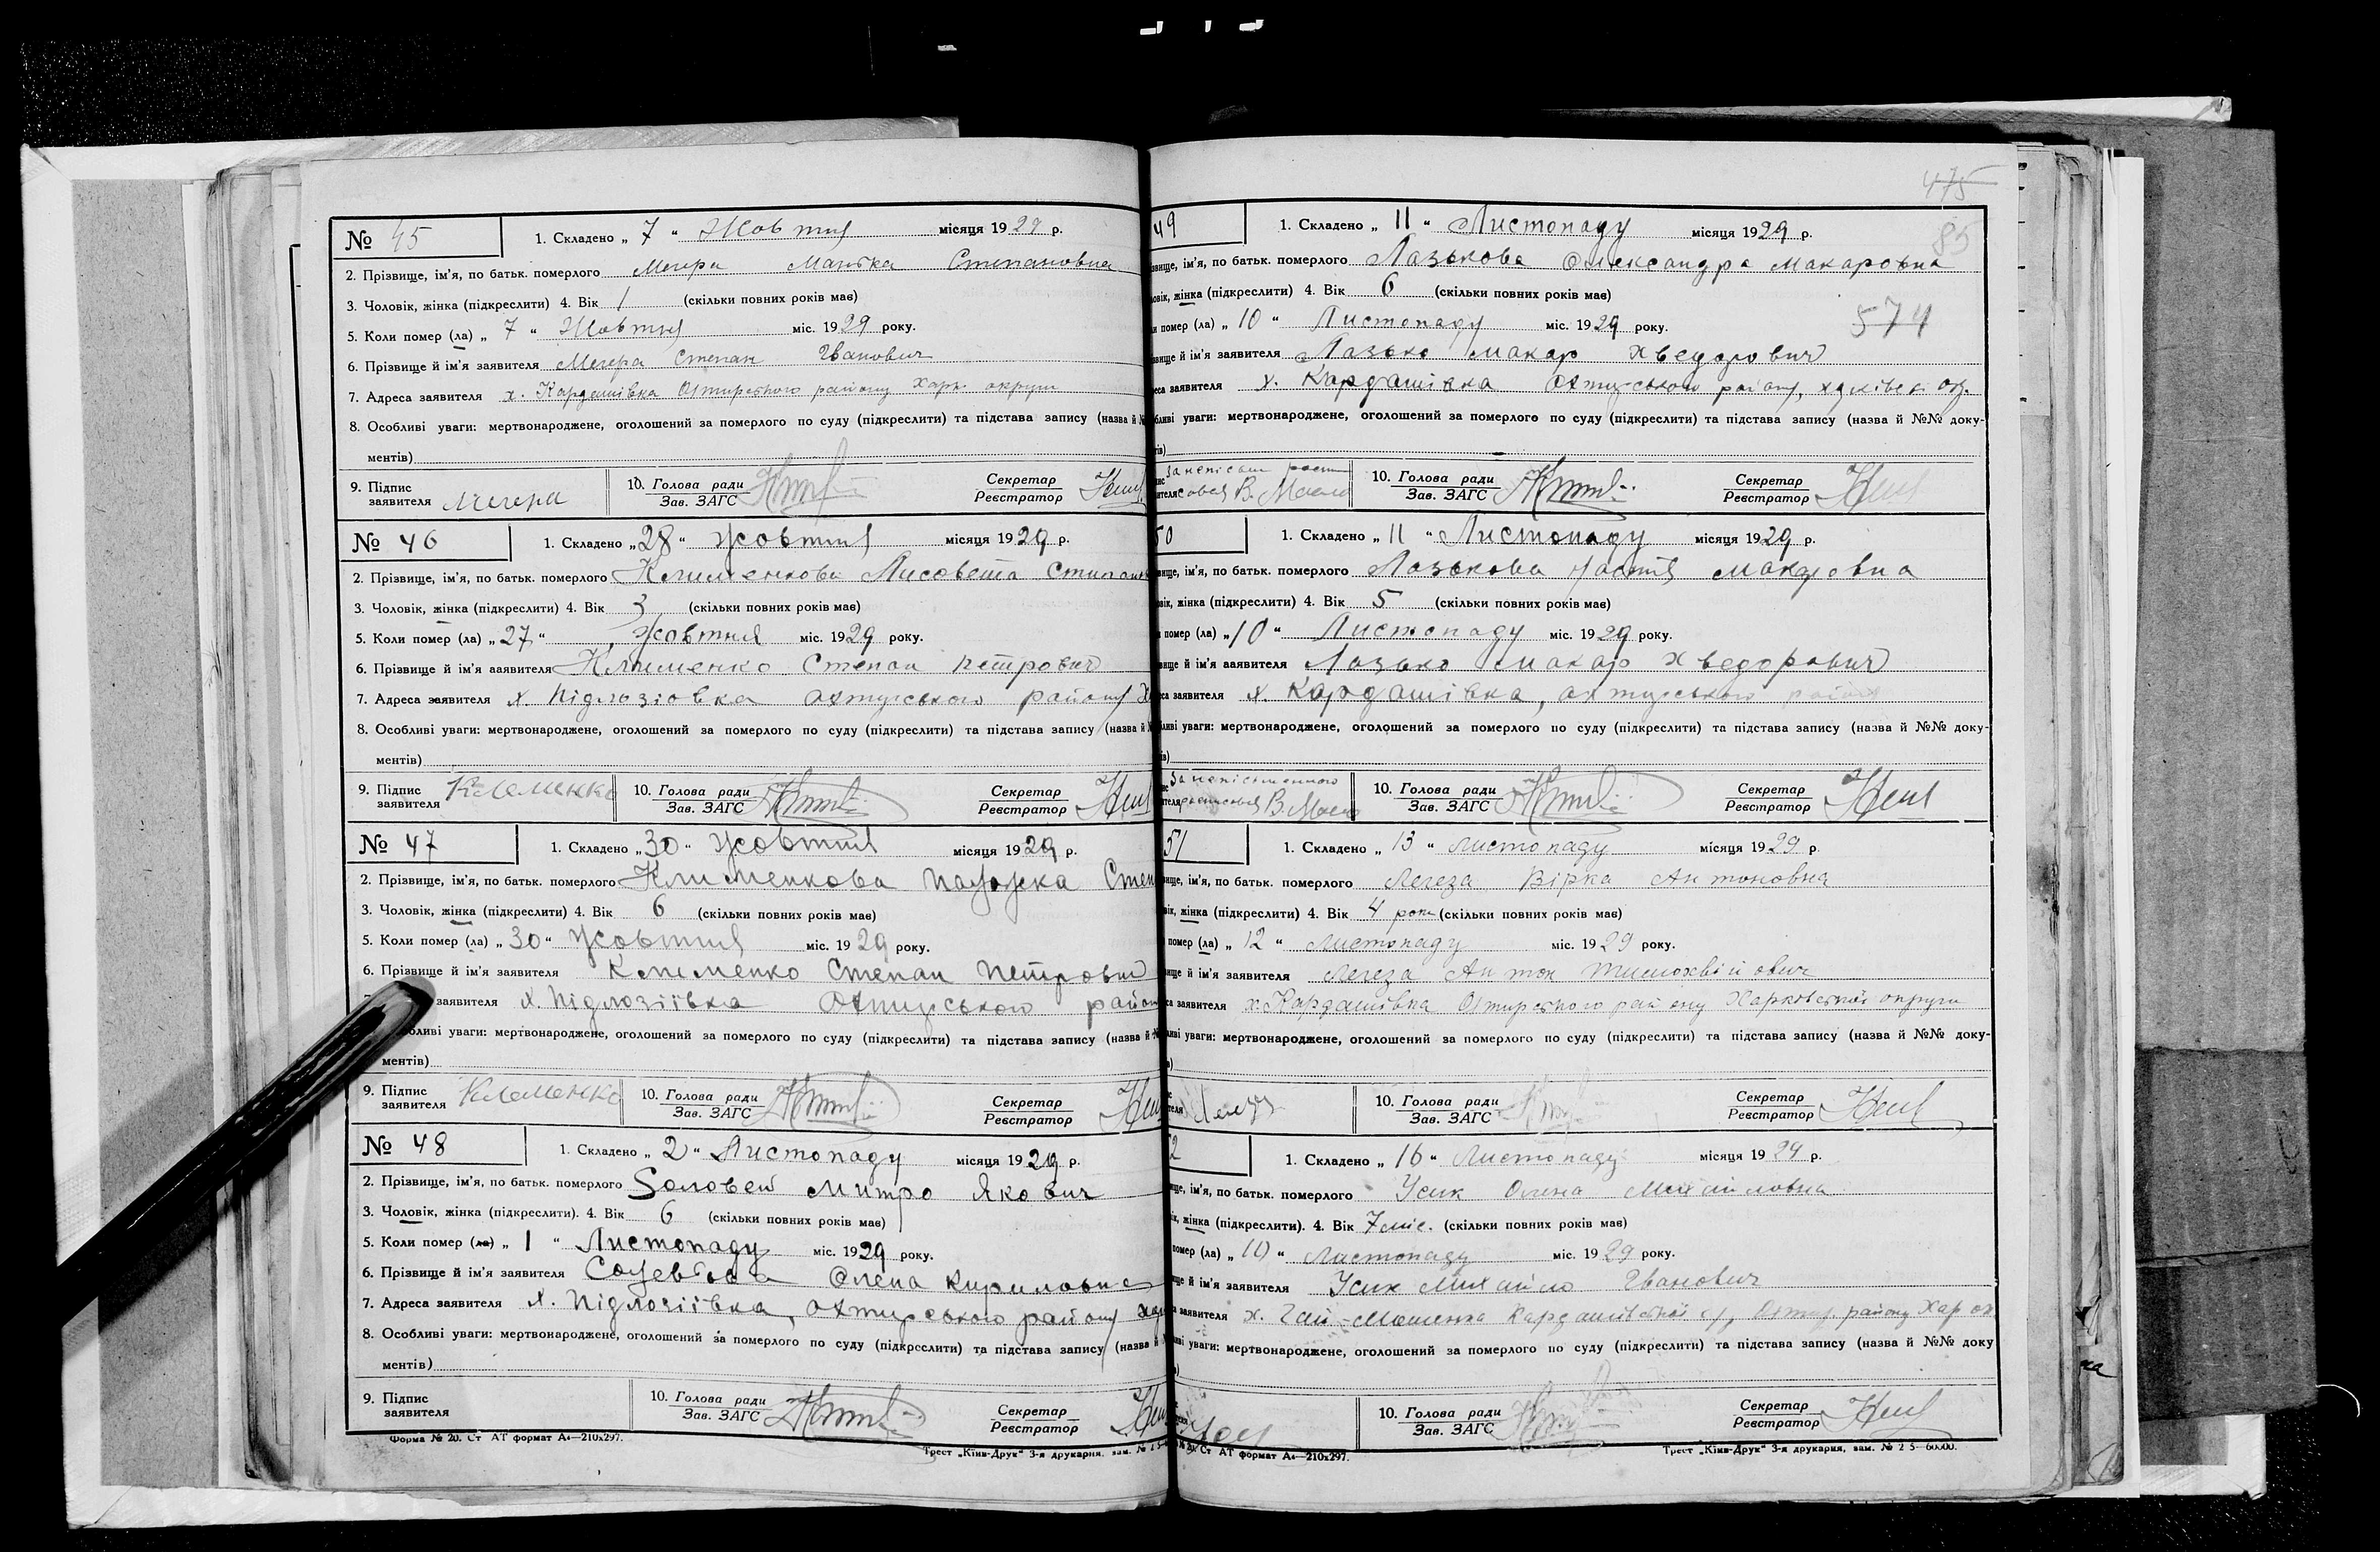 № 45 1. Складено „ 7 “ Жовтня місяця 1929 р.
2. Прізвище, ім'я, по батьк. померлого Мегера Марітка Степановна
3. Чоловік, жінка (підкреслити) 4. Вік 1 (скільки повних років має)
5. Коли помер (ла) „ 7 “ Жовтня міс. 1929 року.
6. Прізвище й ім'я заявителя Мегера Степан Іванович
7. Адреса заявителя х. Кардашівка Охтирського району Харк. округи
8. Особливі уваги: мертвонароджене, оголошений за померлого по суду (підкреслити) та підстава запису (назва й №
ментів)
9. Підпис заявителя Мегера 10. Голова ради Зав. ЗАГС Секретар Реєстратор
№ 46 1. Складено „ 28 “ Жовтня місяця 1929 р.
2. Прізвище, ім'я, по батьк. померлого Клименкова Лисовета
3. Чоловік, жінка (підкреслити) 4. Вік 3 (скільки повних років має)
5. Коли помер (ла) „ 27 “ Жовтня міс. 1929 року.
6. Прізвище й ім'я заявителя Клименко Степан Петрович
7. Адреса заявителя х. Підлозіовка Охтирського району
8. Особливі уваги: мертвонароджене, оголошений за померлого по суду (підкреслити) та підстава запису (назва й
ментів)
9. Підпис заявителя Клеменко 10. Голова ради Зав. ЗАГС Секретар Реєстратор
№ 47 1. Складено „ 30 “ Жовтня місяця 1929 р.
2. Прізвище, ім'я, по батьк. померлого Клименкова Степ
3. Чоловік, жінка (підкреслити) 4. Вік 6 (скільки повних років має)
5. Коли помер (ла) „ 30 “ Жовтня міс. 1929 року.
6. Прізвище й ім'я заявителя Клименко Степан Петрович
заявителя х. Підлозіївка Охтирського район
уваги: мертвонароджене, оголошений за померлого по суду (підкреслити) та підстава запису (назва й
ментів)
9. Підпис заявителя Клеменко 10. Голова ради Зав. ЗАГС Секретар Реєстратор
№ 48 1. Складено „ 2 “ Листопаду місяця 1929 р.
2. Прізвище, ім'я, по батьк. померлого Соловей Митро Якович
3. Чоловік, жінка (підкреслити). 4. Вік 6 (скільки повних років має)
5. Коли помер (ла) „ 1 “ Листопаду міс. 1929 року.
6. Прізвище й ім'я заявителя Олена Кириловна
7. Адреса заявителя х. Підлозіївка, Охтирського району
8. Особливі уваги: мертвонароджене, оголошений за померлого по суду (підкреслити) та підстава запису (назва й
ментів)
9. Підпис заявителя 10. Голова ради Зав. ЗАГС Секретар Реєстратор
Форма № 20. Ст АТ формат А4—210x297.
Трест „Київ-Друк“ 3-я друкарня, зам. №
475
85
49 1. Складено „ 11 “ Листопаду місяця 1929 р.
ім'я, по батьк. померлого Лазькова Олександра Макаровна
жінка (підкреслити) 4. Вік 6 (скільки повних років має)
574
помер (ла) „ 10 “ Листопаду міс. 1929 року.
й ім'я заявителя Лазько Макар Хведорович
заявителя х. Кардашівка Охтирського району,
уваги: мертвонароджене, оголошений за померлого по суду (підкреслити) та підстава запису (назва й №№ доку-
10. Голова ради Зав. ЗАГС Секретар Реєстратор
50 1. Складено „ 11 “ Листопаду місяця 1929 р.
ім'я, по батьк. померлого Лазькова Настя Макаровна
жінка (підкреслити) 4. Вік 5 (скільки повних років має)
помер (ла) „ 10 “ Листопаду міс. 1929 року.
й ім'я заявителя Лазько Макар Хведорович
заявителя х. Кардашівка, Охтирського району
уваги: мертвонароджене, оголошений за померлого по суду (підкреслити) та підстава запису (назва й №№ доку-
10. Голова ради Зав. ЗАГС Секретар Реєстратор
51 1. Складено „ 13 “ Листопаду місяця 1929 р.
ім'я, по батьк. померлого Легеза Вірка Антоновна
жінка (підкреслити) 4. Вік 4 роки (скільки повних років має)
помер (ла) „ 12 “ Листопаду міс. 1929 року.
й ім'я заявителя Легеза Антон Тимохвійович
заявителя х. Кардашівка Охтирського району Харківської округи
уваги: мертвонароджене, оголошений за померлого по суду (підкреслити) та підстава запису (назва й №№ доку-
10. Голова ради Зав. ЗАГС Секретар Реєстратор
2 1. Складено „ 16 “ Листопаду місяця 1929 р.
ім'я, по батьк. померлого Усик Олена Михайловна
жінка (підкреслити). 4. Вік 7 міс. (скільки повних років має)
помер (ла) „ 10 “ Листопаду міс. 1929 року.
й ім'я заявителя Усик Михайло Іванович
заявителя х. Гай-Мошенка Кардашівської с/р, Охтир. району Хар ок
уваги: мертвонароджене, оголошений за померлого по суду (підкреслити) та підстава запису (назва й №№ доку
10. Голова ради Зав. ЗАГС Секретар Реєстратор
Ст АТ формат А4—210x297.
Трест „Київ-Друк“ 3-я друкарня, зам. № 2 5—60000.